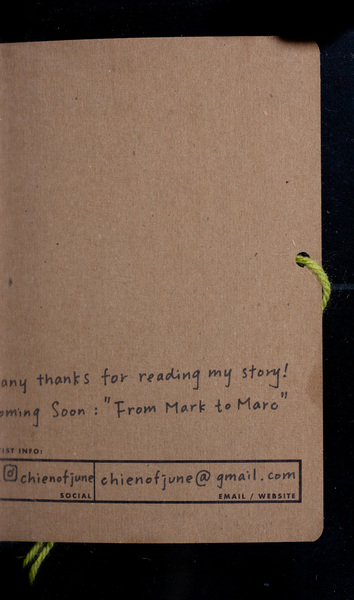 any thanks for reading my story!
oming Soon : "From Mark to Marc"
IST INFO:
chienofjune chienofjune@gmail.com
SOCIAL EMAIL / WEBSITE